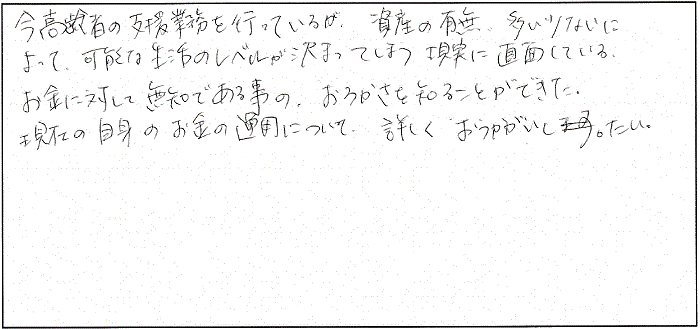 今高齢者の支援業務を行っているが、資産の有無、多い少ないに
よって、可能な生活のレベルが決まってしまう現実に直面している。
お金に対して無知である事の、おろかさを知ることができた。
現在の自身のお金の運用について、詳しくおうかがいしたい。